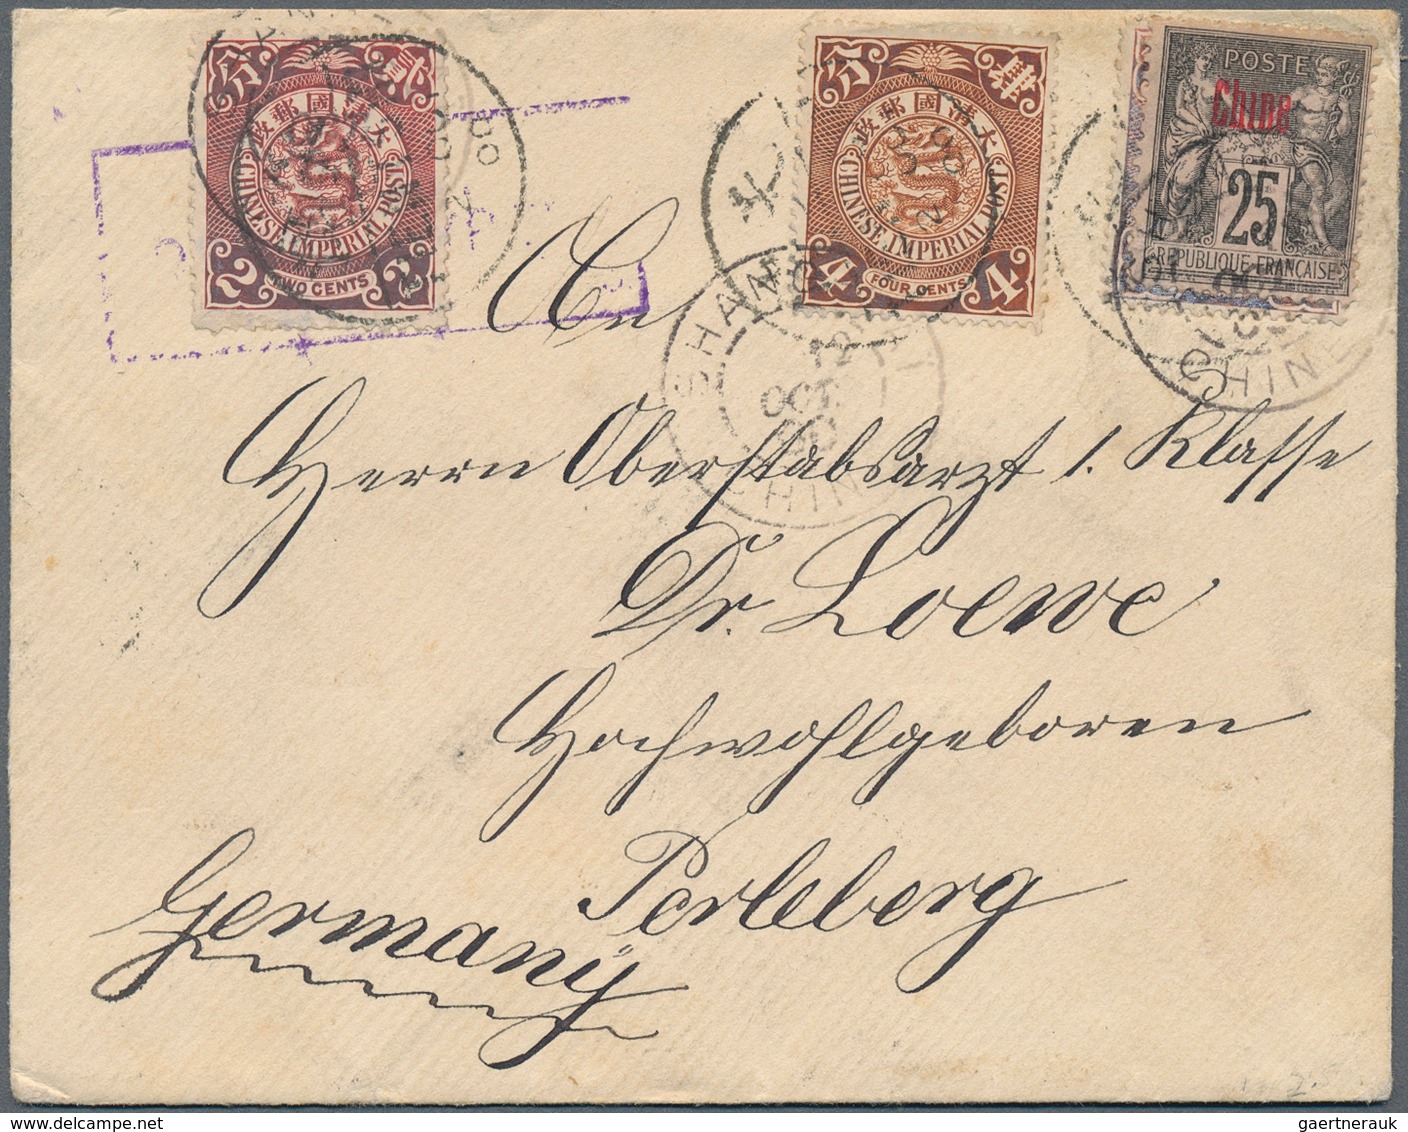 分 貳
大清國郵政
CHINESE IMPERIAL POST
2 TWO CENTS 2
分 肆
大清國郵政
CHINESE IMPERIAL POST
4 FOUR CENTS 4
POSTE
Chine
25
REPUBLIQUE FRANÇAISE
SHANG
12
OCT
00
CHINE
CHINE
An
Herrn Oberstabsarzt 1. Klasse
Dr. Loewe
Hochwohlgeboren
Perleberg
Germany
gaertnerauk